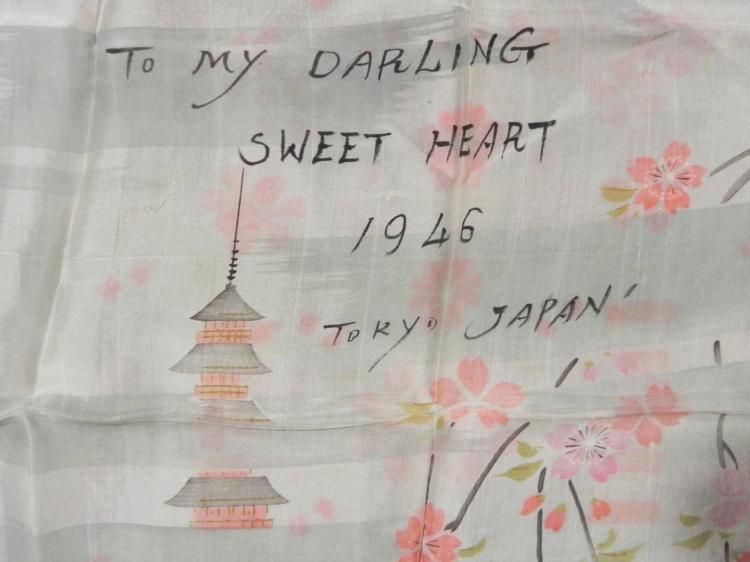 To My DARLING
SWEET HEART
1946
TOKYO JAPAN'